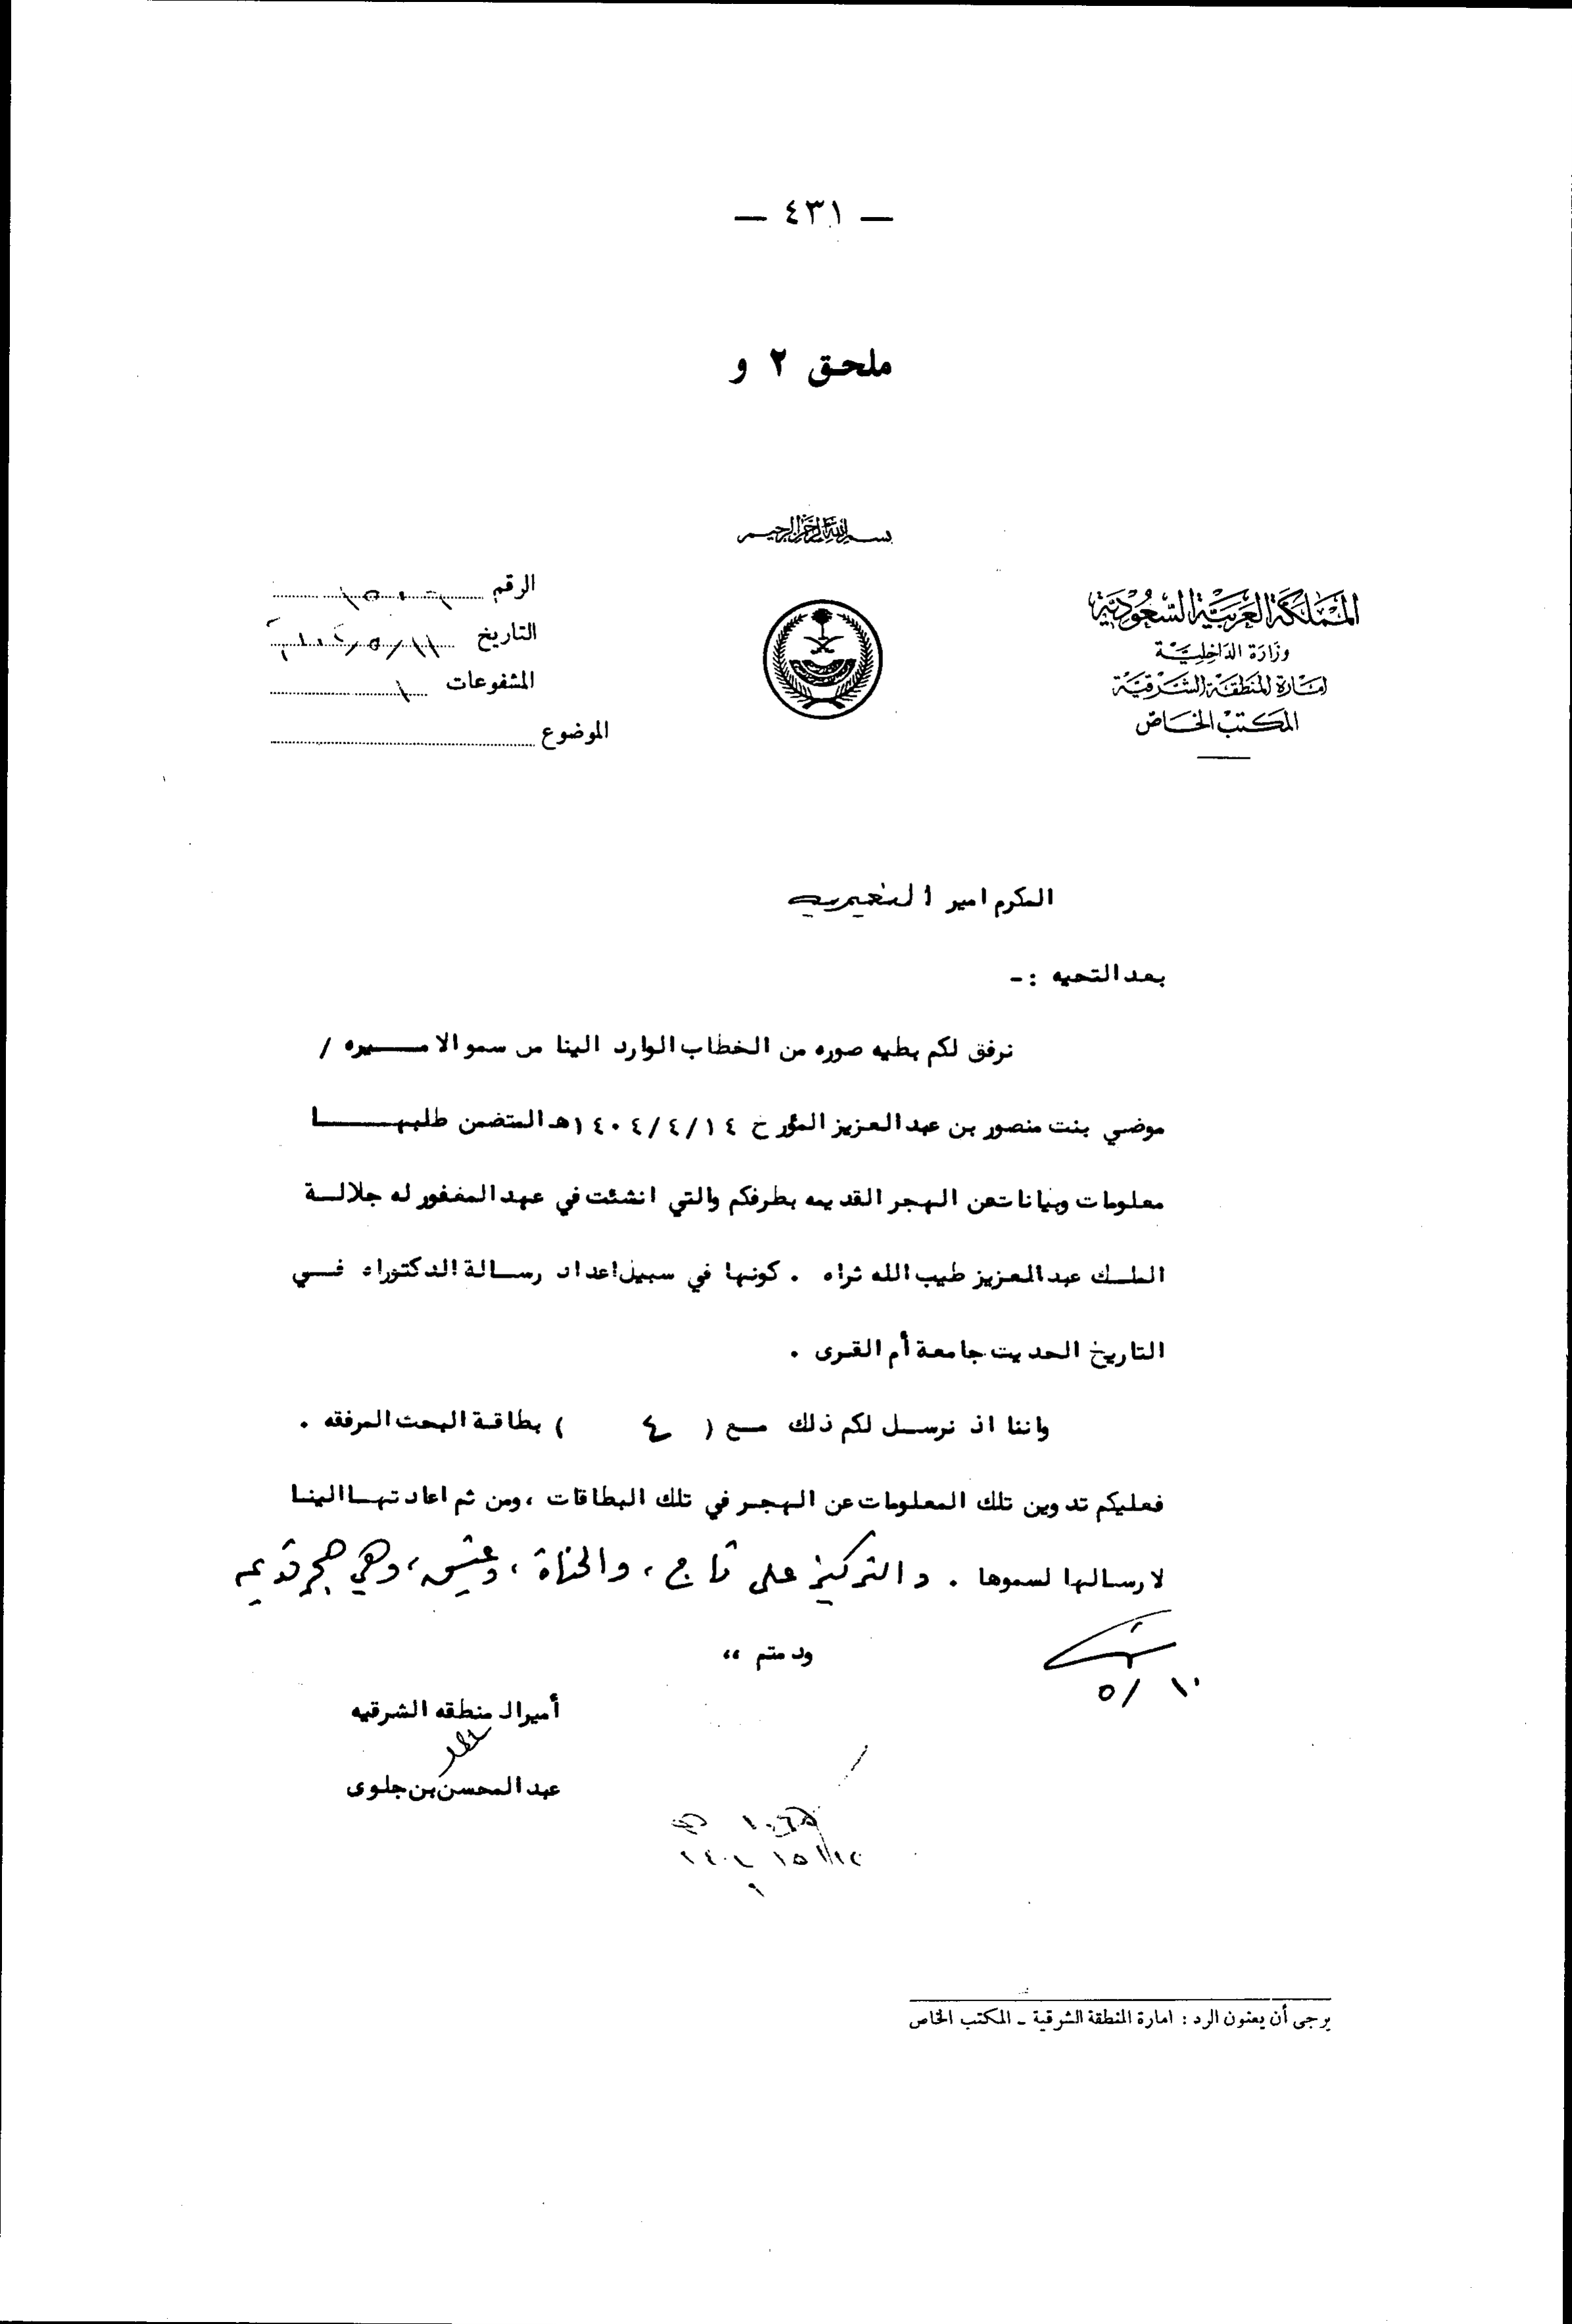 — ٤٣١ —
ملحق ٢ و
بسم الله الرحمن الرحيم
المملكة العربية السعودية
وزارة الداخلية
امارة المنطقة الشرقية
المكتب الخاص
الرقم
التاريخ ١١/٥/
المشفوعات ١
الموضوع
المكرم امير النعيريه
بعد التحيه :-
نرفق لكم بطيه صوره من الخطاب الوارد الينا من سمو الاميره /
موضي بنت منصور بن عبد العزيز المؤرخ ١٤٠٤/٤/١٤هـ المتضمن طلبها
معلومات وبيانات عن الهجر القديمه بطرفكم والتي انشئت في عهد المغفور له جلالة
الملك عبد العزيز طيب الله ثراه . كونها في سبيل اعداد رسالة الدكتوراه في
التاريخ الحديث جامعة أم القرى .
واننا اذ نرسل لكم ذلك مع ( ٤ ) بطاقة البحث المرفقه .
فعليكم تدوين تلك المعلومات عن الهجر في تلك البطاقات ، ومن ثم اعادتها الينا
لارسالها لسموها . والتركيز على ثاج ، والحناة ، وعتيق ، وهي هجر قديمه
ودمتم ،،
١٠/٥
أمير المنطقه الشرقيه
عبد المحسن بن جلوى
يرجى أن يعنون الرد : امارة المنطقة الشرقية - المكتب الخاص